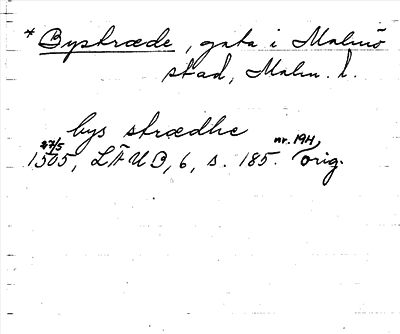 * Bystræde, gata i Malmö
stad, Malm. l.
bys strædhe
27/5 nr. 194,
1505, LÄUB, 6, s. 185. orig.